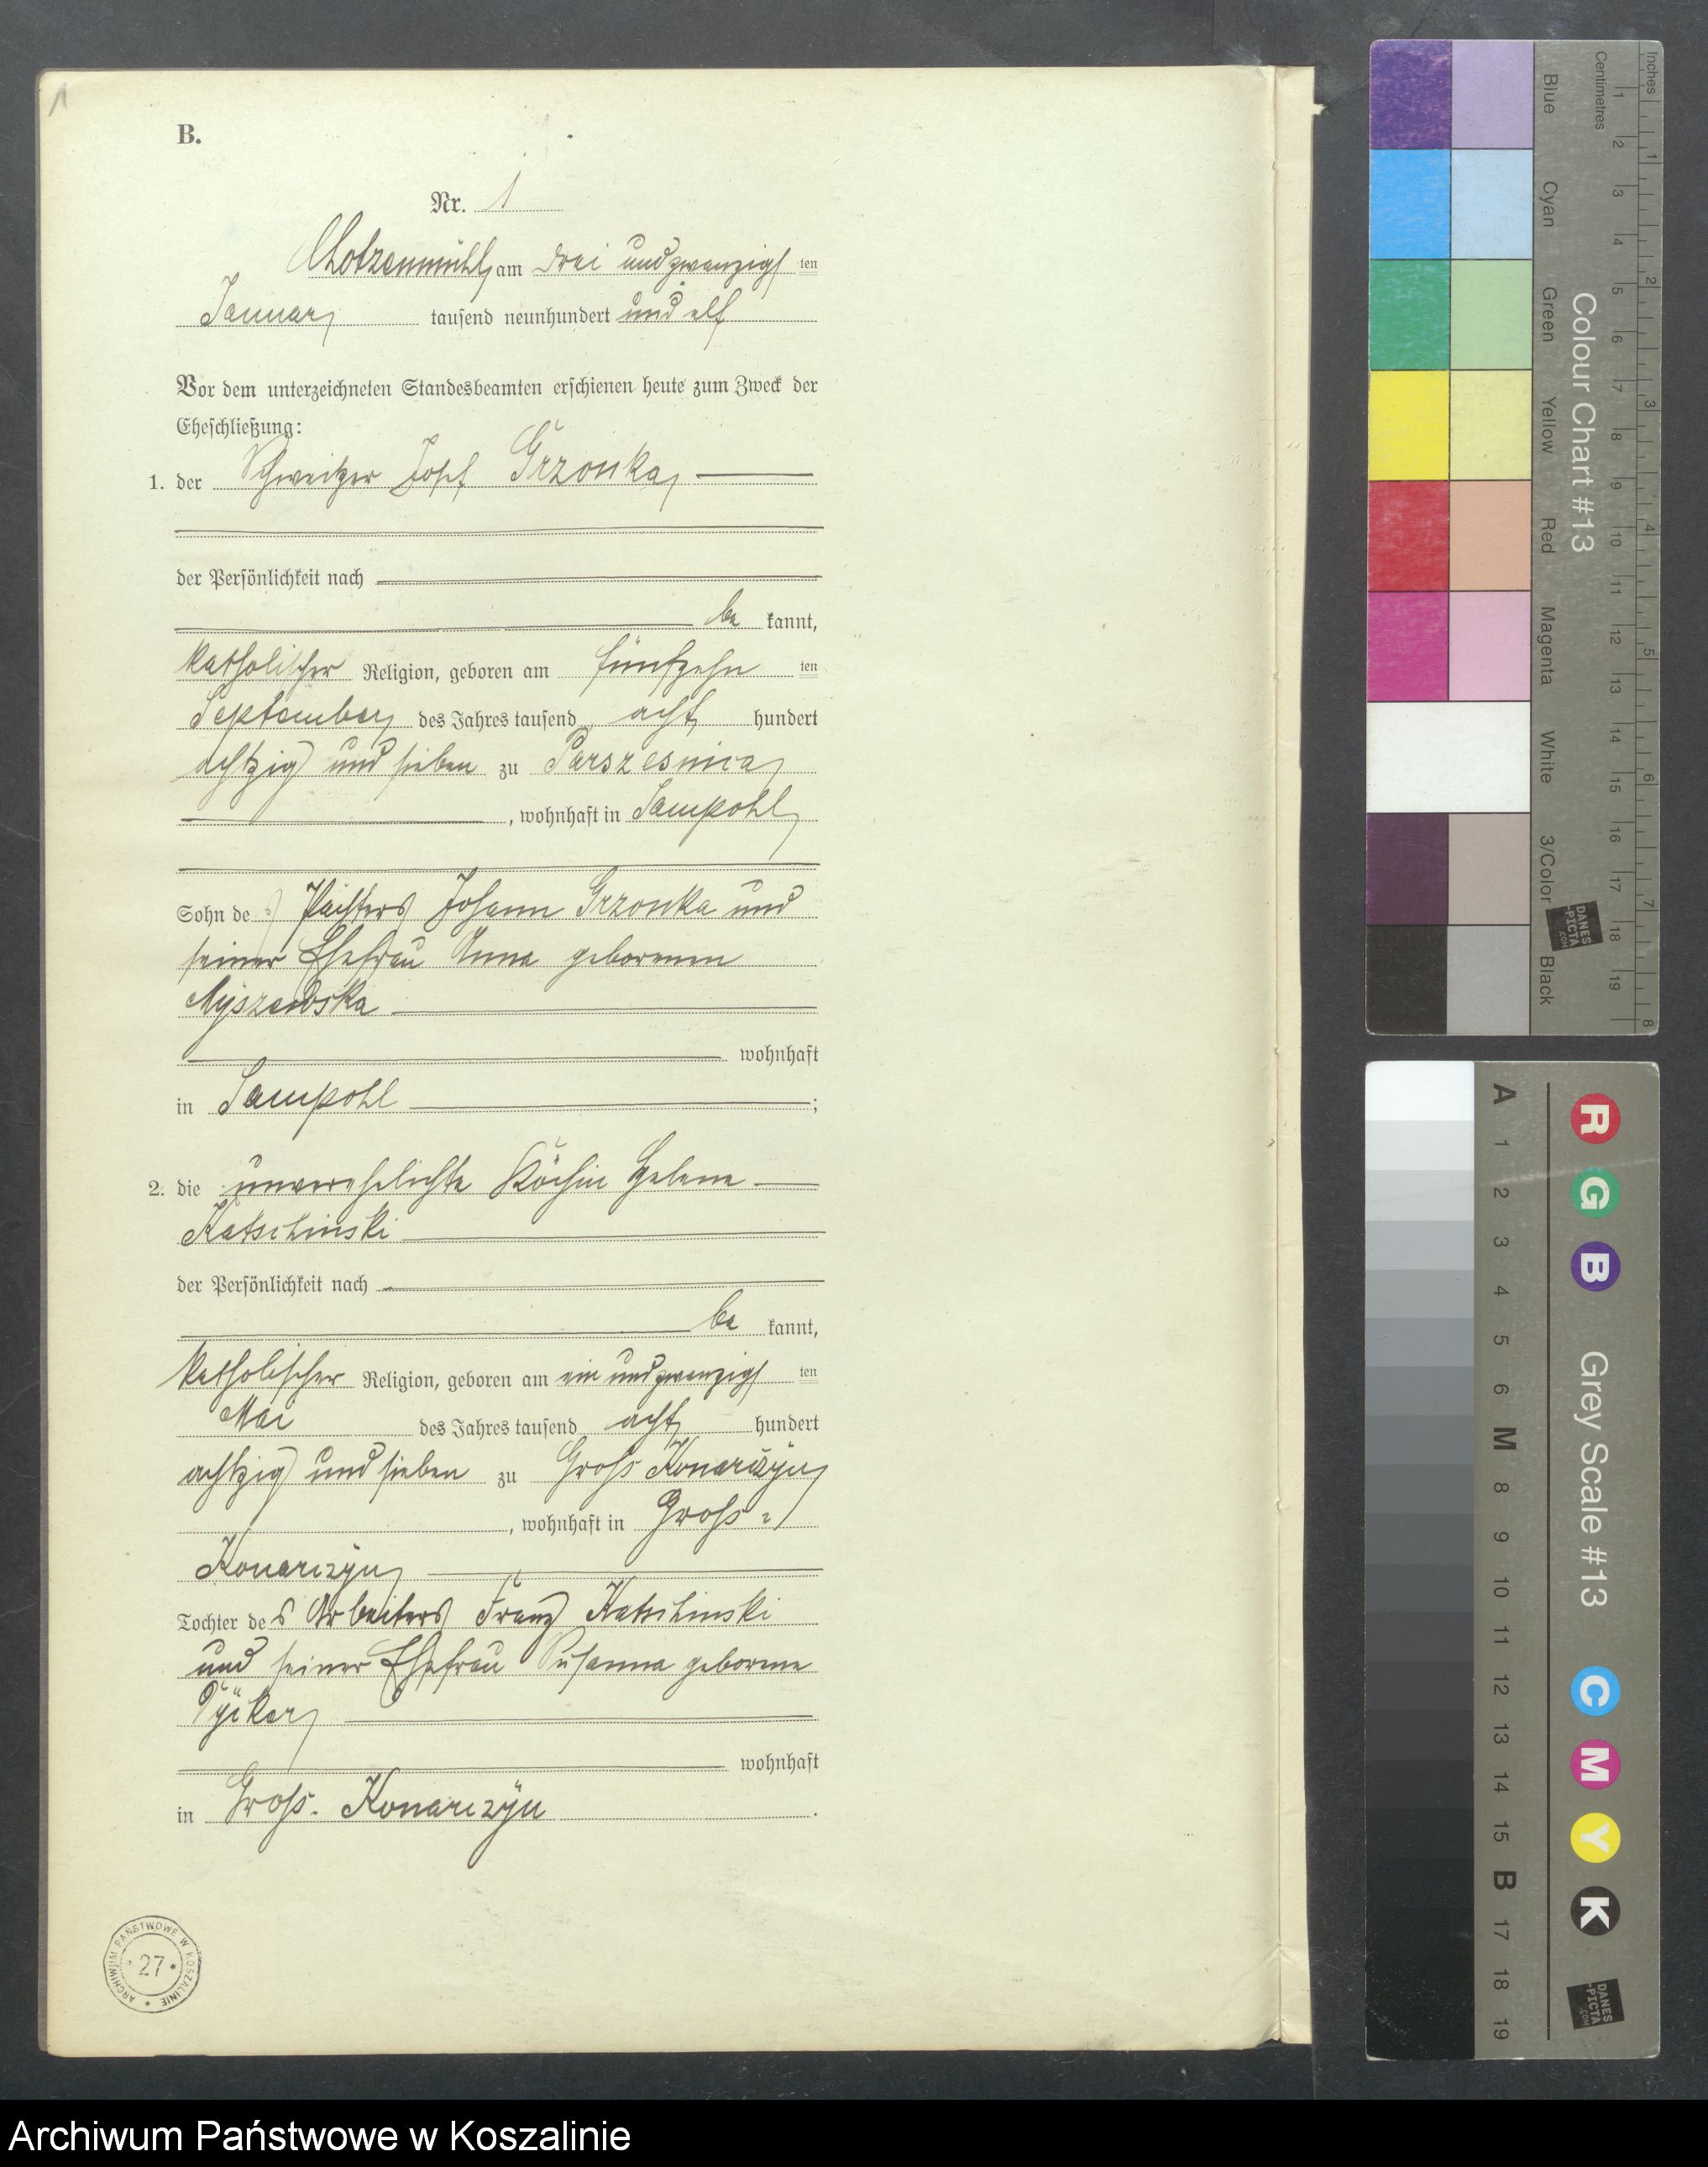 B.
Nr. 1
Chotzenmühl, am drei und zwanzigs ten
Januar tausend neunhundert und elf
Vor dem unterzeichneten Standesbeamten erschienen heute zum Zweck der
Eheschließung:
1. der Schweitzer Josef Grzonka,
der Persönlichkeit nach
be kannt,
katholischer Religion, geboren am fünfzehn ten
September des Jahres tausend acht hundert
achtzig und sieben zu
, wohnhaft in Sampohl,
Sohn des Johann Grzonka und
seiner Ehefrau Anna geborenen
Myszewska
wohnhaft
in Sampohl ;
2. die unverehelichte Köchin Helene
Katschinski
der Persönlichkeit nach
be kannt,
katholischer Religion, geboren am ein und zwanzigs ten
Mai des Jahres tausend acht hundert
achtzig und sieben zu Gross Konarczyn,
, wohnhaft in Gross-
Konarczyn,
Tochter des Arbeiters Franz Katschinski
und seiner Ehefrau Susanna geborene
wohnhaft
in Gross-Konarczyn .
ARCHIWUM PAŃSTWOWE W KOSZALINIE
* 27 *
Inches
Centimetres
1 2 3 4 5 6 7 8 9 10 11 12 13 14 15 16 17 18 19
1 2 3 4 5 6 7 8
Colour Chart #13
Blue Cyan Green Yellow Red Magenta White 3/Color Black
DANES
-PICTA
.COM
R G B
Grey Scale #13
C M Y K
A 1 2 3 4 5 6 M 8 9 10 11 12 13 14 15 B 17 18 19
DANES
-PICTA
.COM
Archiwum Państwowe w Koszalinie